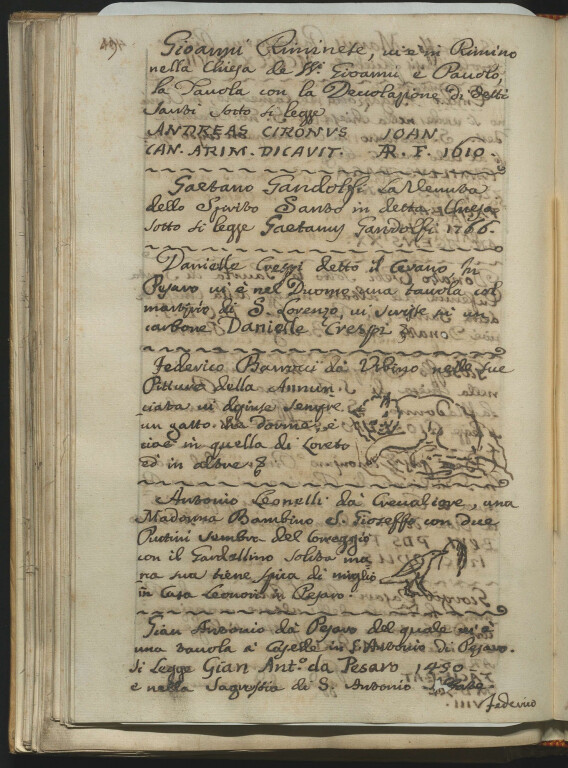 Gioanni Riminese, vi è in Rimino
nella Chiesa de SS. Gioanni e Pauolo,
la Tauola con la Decolazione di detti
Santi sotto si legge
ANDREAS CIRONVS IOAN
CAN. ARIM. DICAVIT. AR. F. 1610.
Gaetano Gandolfi la Venuta
dello Spirito Santo in detta Chiesa
sotto si legge Gaetanus Gandolfi 1766.
Danielle Crespi detto il Cerano in
Pesaro vi è nel Duomo una tauola col
martirio di S. Lorenzo, vi scrisse in un
carbone Danielle Crespi
Federico Barocci da Vrbino nelle sue
Pitture della Annun
ciata vi dipinse sempre
un gatto che dorme, e
cioè in quella di Loreto
ed in altre
Antonio Leonelli da Crevalcore, una
Madonna Bambino S. Gioseffe con due
Puttini sembra del Coreggio
con il Gardellino solita ma
na sua tiene spica di miglio
in Casa Leonori in Pesaro.
Gian Antonio da Pesaro del quale vi è
una tauola a Caselle in S. Antonio di Pesaro.
Si legge Gian Ant.o da Pesaro 1490
e nella Sagrestia di S. Antonio
Federico